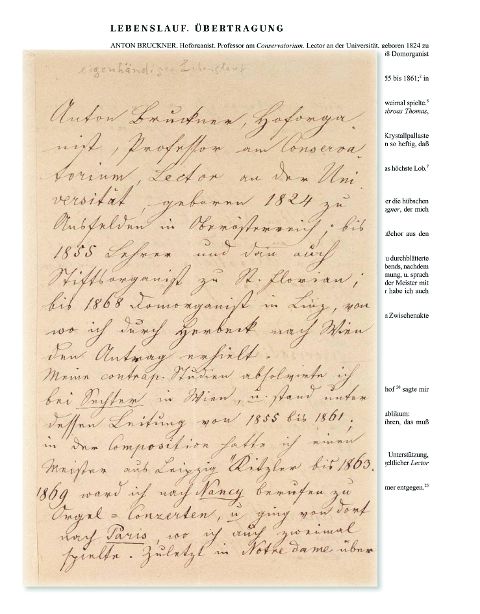 LEBENSLAUF. ÜBERTRAGUNG
ANTON BRUCKNER. Hoforganist. Professor am Conservatorium. Lector an der Universität. geboren 1824 zu
68 Domorganist
55 bis 1861;¹ in
weimal spielte.⁶
Krystallpallaste
n so heftig, daß
as höchste Lob.⁷
er die hübschen
agner, der mich
ßchor aus den
u durchblätterte
bends, nachdem
mung, u. sprach
der Meister mit
r habe ich auch
n Zwischenakte
hof²⁴ sagte mir
ublikum:
ihren, das muß
Unterstützung,
geltlicher Lector
mer entgegen.²⁵
eigenhändiger Lebenslauf
Anton Bruckner, Hoforga-
nist, Professor am Conserva-
torium, Lector an der Uni-
versität, geboren 1824 zu
Ansfelden in Oberösterreich; bis
1855 Lehrer und dan auch
Stiftsorganist zu St. Florian;
bis 1868 Domorganist in Linz, von
wo ich durch Herbeck nach Wien
den Antrag erhielt.
Meine contrap. Studien absolvirte ich
bei Sechter in Wien, u. stand unter
dessen Leitung von 1855 bis 1861.
in der Composition hatte ich einen
Meister aus Leipzig Kitzler bis 1863.
1869 ward ich nach Nancy berufen zu
Orgel=Conzerten, u. ging von dort
nach Paris, wo ich auch zweimal
spielte. Zuletzt in Notre dame über